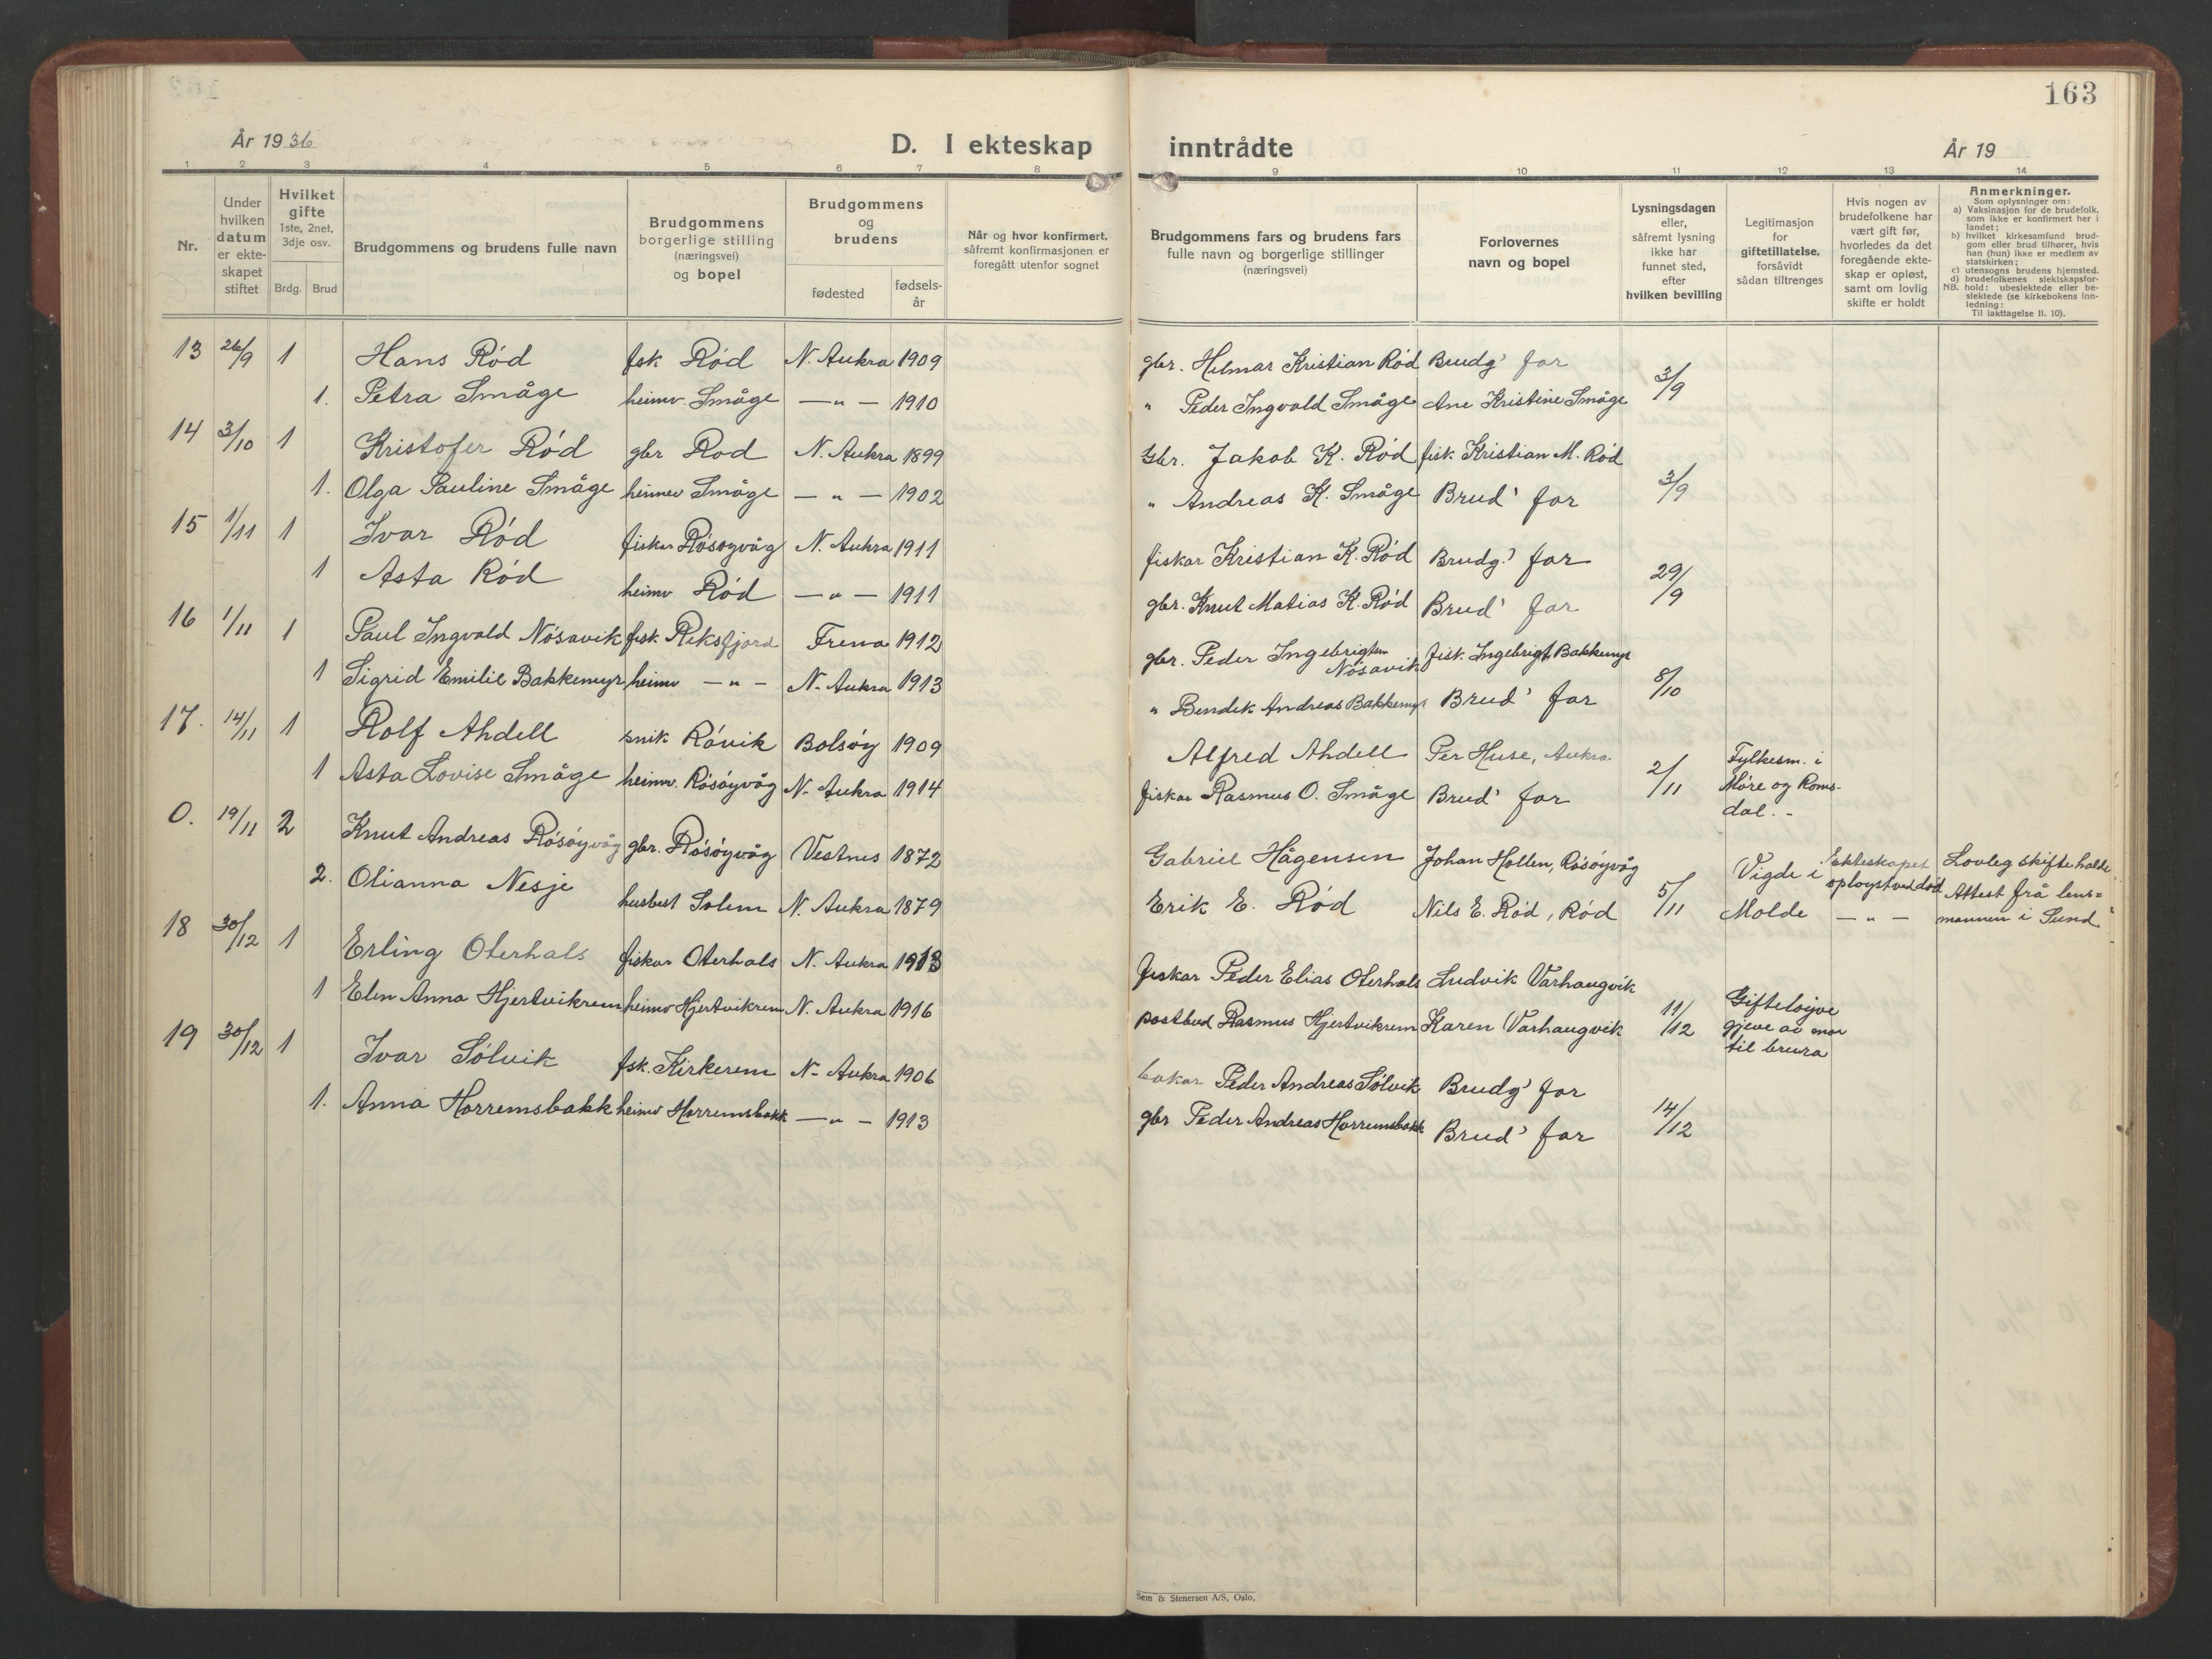 163
År 1936
D. I ekteskap inntrådte
År 19
1 2 3 4 5 6 7 8 9 10 11 12 13 14
Nr.
Under hvilken datum er ekteskapet stiftet
Hvilket gifte 1ste, 2net, 3dje osv.
Brdg. Brud
Brudgommens og brudens fulle navn
Brudgommens borgerlige stilling (næringsvei) og bopel
Brudgommens og brudens
fødested
fødselsår
Når og hvor konfirmert, såfremt konfirmasjonen er foregått utenfor sognet
Brudgommens fars og brudens fars fulle navn og borgerlige stillinger (næringsvei)
Forlovernes navn og bopel
Lysningsdagen eller, såfremt lysning ikke har funnet sted, efter hvilken bevilling
Legitimasjon for giftetillatelse, forsåvidt sådan tiltrenges
Hvis nogen av brudefolkene har vært gift før, hvorledes da det foregående ekteskap er opløst, samt om lovlig skifte er holdt
Anmerkninger.
Som oplysninger om:
a) Vaksinasjon for de brudefolk, som ikke er konfirmert her i landet;
b) hvilket kirkesamfund brudgom eller brud tilhører, hvis han (hun) ikke er medlem av statskirken;
c) utensogns brudens hjemsted.
d) brudefolkenes slektskapsforhold: ubeslektede eller beslektede (se kirkebokens innledning:
NB.
Til iakttagelse II. 10).
13 26/9 1 Hans Rød fsk Rød N. Aukra 1909 gbr. Hilmar Kristian Rød Brudg' far 3/9
1. Petra Småge heimv. Småge — " — 1910 " Peder Ingvald Småge Ane Kristine Småge
14 3/10 1 Kristofer Rød gbr Rod N. Aukra 1899 Gbr. Jakob K. Rød fisk. Kristian M. Rød 3/9
1. Olga Pauline Småge heimv Småge — " — 1902 " Andreas K. Småge Brud' far
15 1/11 1 Ivar Rød fiskar Røsøyvåg N. Aukra 1911 fiskar Kristian K. Rød Brudg.' far 29/9
1 Asta Rød heimv Rød — " — 1911 gbr. Knut Matias K. Rød Brud' far
16 1/11 1 Paul Ingvald Nøsavik fisk. Riksfjord Frena 1912 gbr. Peder Ingebrigtsen Nøsavik fisk. Ingebrigt Bakkemyr 8/10
1 Sigrid Emilie Bakkemyr heimv — " — N. Aukra 1913 " Bendik Andreas Bakkemyr Brud' far
17. 14/11 1 Rolf Ahdell snik Røvik Bolsøy 1909 Alfred Ahdell Per Huse, Aukra 2/11 Fylkesm. i
1 Asta Lovise Småge heimv. Røsøyvåg N. Aukra 1914 fiskar Rasmus O. Småge Brud' far Møre og Roms-
dal. -
0. 19/11 2 Knut Andreas Røsøyvåg gbr. Røsøyvåg Vestnes 1872 Gabriel Hågensen Johan Hollen, Røsøyvåg 5/11 Vigde i Ekteskapet oployst ved død Lovleg skifte halde.
2. Olianna Nesje husbest Solem N. Aukra 1879 Erik E. Rød Nils E. Rød, Rød Molde — " — Attest frå lens=
mannen i Sund
18 30/12 1 Erling Oterhals fiskar Oterhals N. Aukra 1913 fiskar Peder Elias Oterhals Ludvik Varhaugvik 11/12 Gifteløyve
1 Elen Anna Hjertvikrem heimv Hjertvikrem N. Aukra 1916 postbud Rasmus Hjertvikrem Karen Varhaugvik gjeve av mor
til brura
19 30/12 1 Ivar Sølvik fsk. Kirkerem N. Aukra 1906 bakar Peder Andreas Sølvik Brudg' far 14/12
1. Anna Horremsbakk heimv Horremsbakk — " — 1913 gbr Peder Andreas Horremsbakk Brud' far
Sem & Stenersen A/S, Oslo.